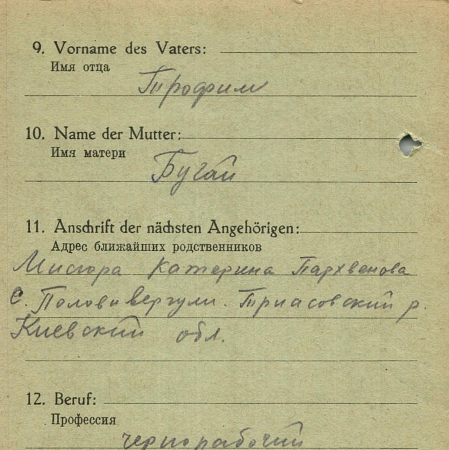 9. Vorname des Vaters:
Имя отца
Трофим
10. Name der Mutter:
Имя матери
Бугай
11. Anschrift der nächsten Angehörigen:
Адрес ближайших родственников
Мисюра Катерина Пархвенова
с. Половивергули. Триасовский р.
Киевский обл.
12. Beruf:
Профессия
чернорабочий